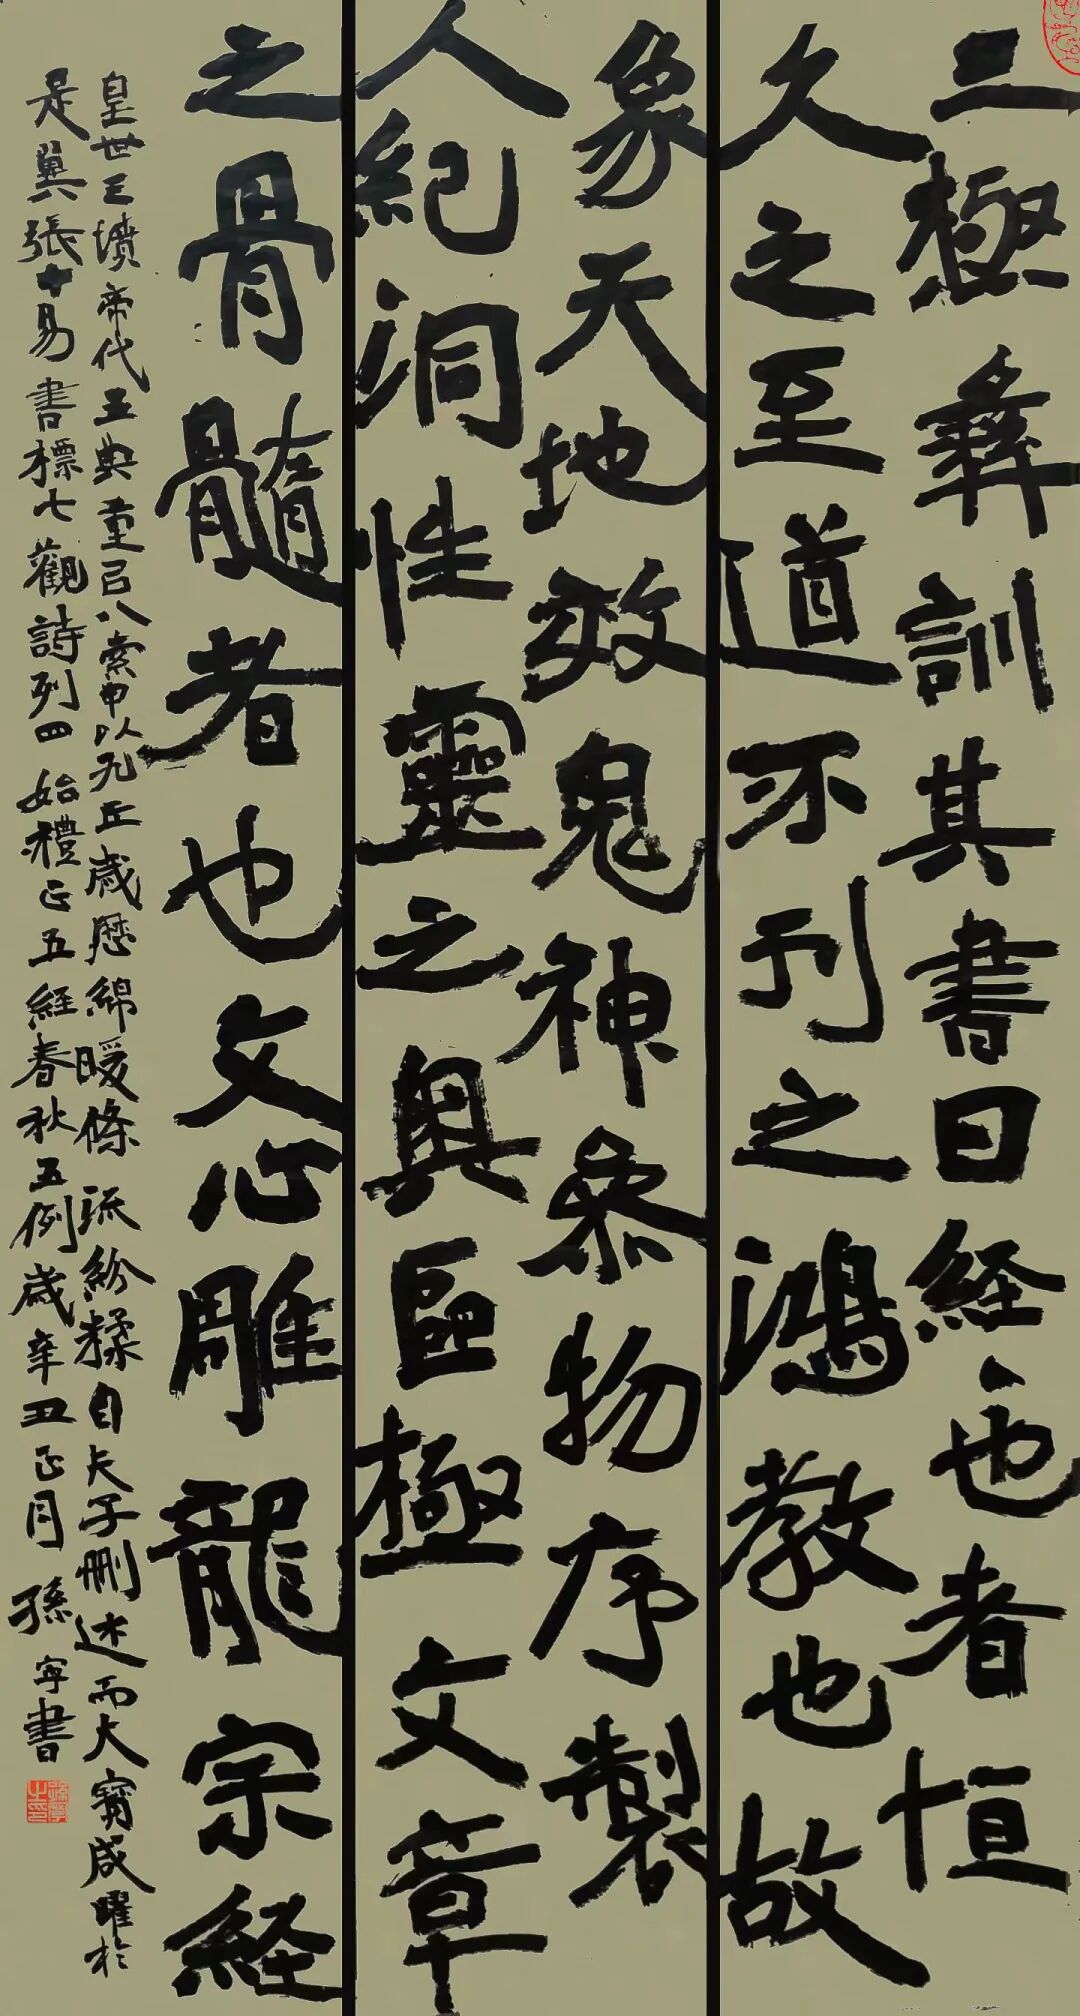 三極彝訓其書曰経也者恒
久之至道不刊之鴻教也故
象天地效鬼神参物序製
人紀洞性靈之奥区極文章
之骨髓者也文心雕龍宗経
皇世三墳帝代五典重以八索申以九丘歲歷綿曖條流紛糅自夫子刪述而大寶咸曜於
是異張十易書標七觀詩列四始禮正五経春秋五例歲辛丑正月孫宁書